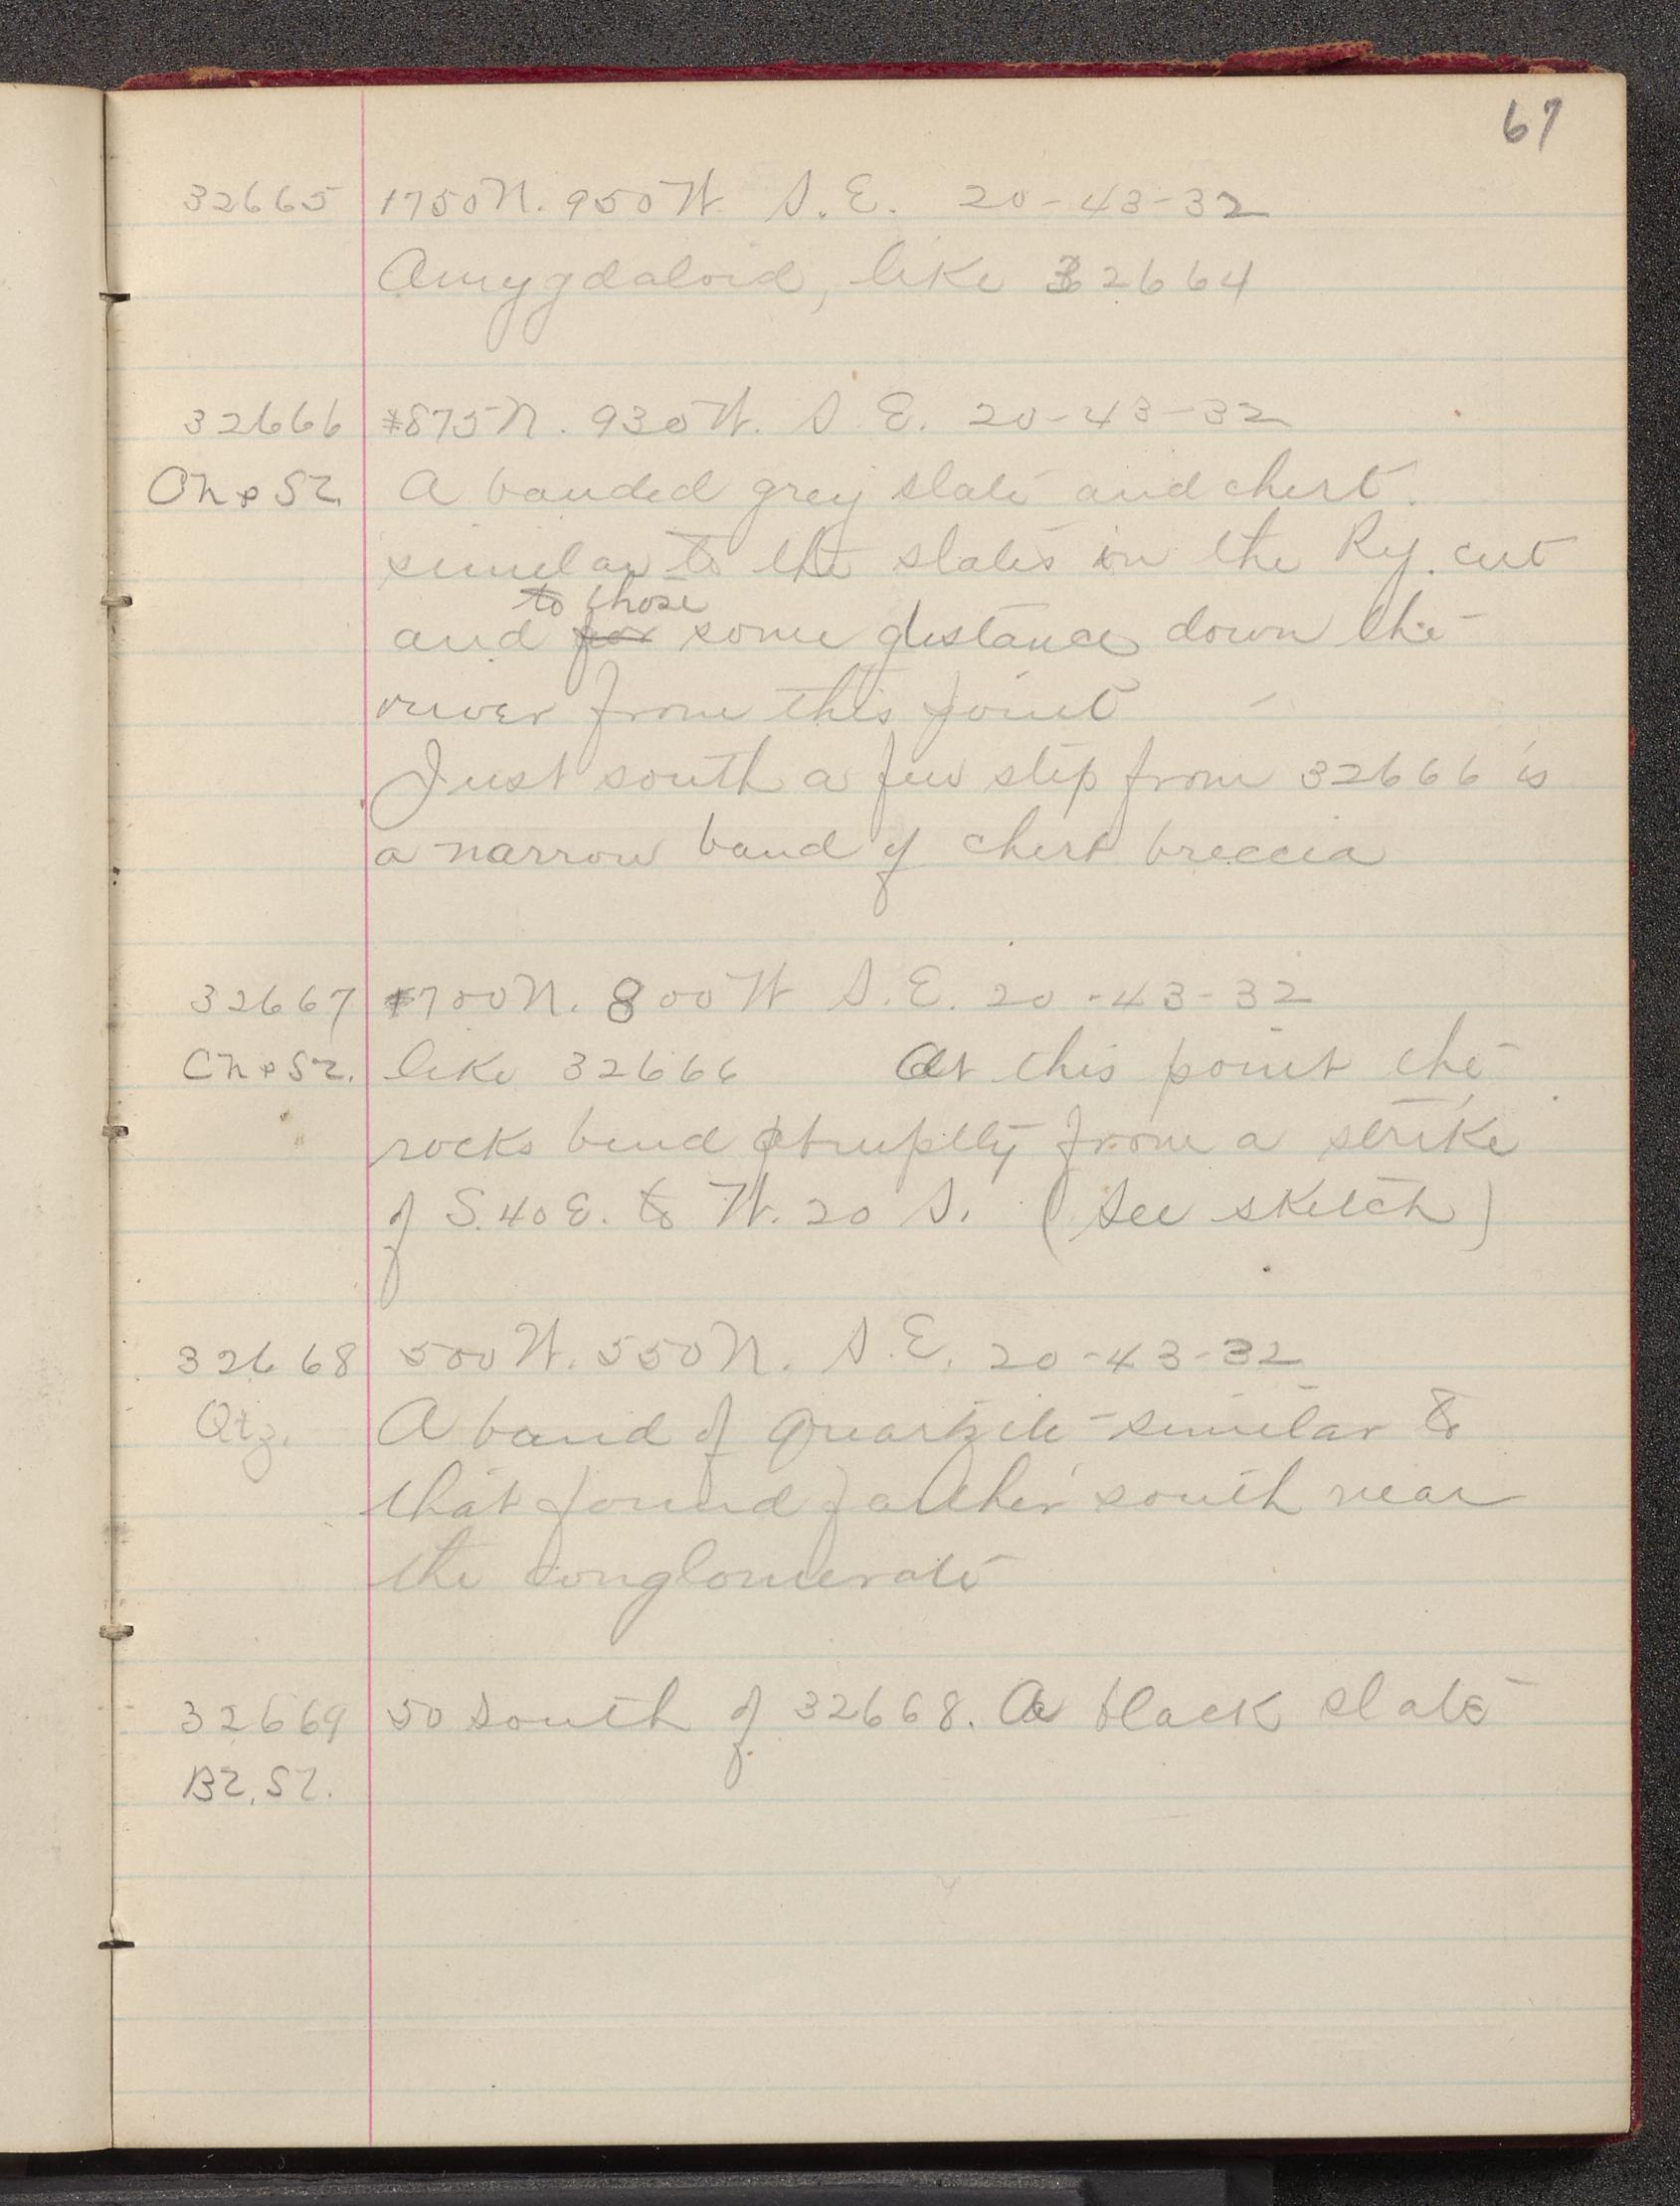 67
32665 1750N. 950W. S.E. 20-43-32
Amygdaloid, like 32664
32666 875N. 930W. S.E. 20-43-32
Ch & Sl. A banded grey slate and chert.
similar to the slates in the Ry. cut
to those
and for some distance down the
river from this point
Just south a few step from 32666 is
a narrow band of chert breccia
32667 700N. 800W S.E. 20-43-32
Ch & Sl. like 32666 At this point the
rocks bend abruptly from a strike
of S. 40 E. to W. 20 S. (See sketch)
32668 500W. 550N. S.E. 20-43-32
Qtz. A band of Quartzite similar to
that found farther south near
the conglomerate
32669 50 South of 32668. A black slate
Bl. Sl.